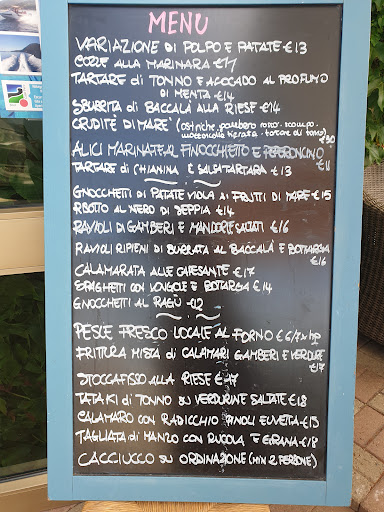 MENU
VARIAZIONE DI POLPO E PATATE €13
COZZE ALLA MARINARA €11
TARTARE di TONNO E AVOCADO AL PROFUMO
DI MENTA €14
SBURRITA di BACCALÀ ALLA RIESE €14
CRUDITÉ DI MARE (ostriche, gambero rosso, scampo,
tartare di tonno)
€30
ALICI MARINATE AL FINOCCHIETTO E PEPERONCINO
€11
TARTARE di CHIANINA E SALSA TARTARA €13
GNOCCHETTI DI PATATE VIOLA AI FRUTTI DI MARE €15
RISOTTO AL NERO DI SEPPIA €14
RAVIOLI DI GAMBERI E MANDORLE SALATI €16
RAVIOLI RIPIENI DI BURRATA AL BACCALÀ E BOTTARGA
€16
CALAMARATA ALLE CAPESANTE €17
SPAGHETTI CON VONGOLE E BOTTARGA €14
GNOCCHETTI AL RAGÙ €12
PESCE FRESCO LOCALE AL FORNO €6/7 x
FRITTURA MISTA di CALAMARI GAMBERI E VERDURE
€17
STOCCAFISSO ALLA RIESE €17
TATAKI di TONNO SU VERDURINE SALTATE €18
CALAMARO CON RADICCHIO PINOLI E UVETTA €15
TAGLIATA di MANZO CON RUCOLA E GRANA €18
CACCIUCCO SU ORDINAZIONE (MIN 2 PERSONE)